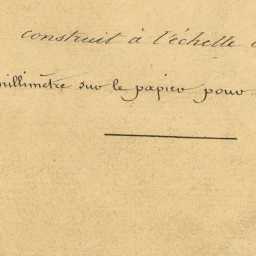 construit à l'échelle
millimètre sur le papier pour